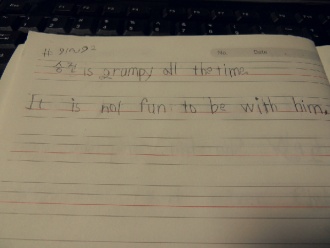 No. Date
is grumpy all the time.
It is not fun to be with him.